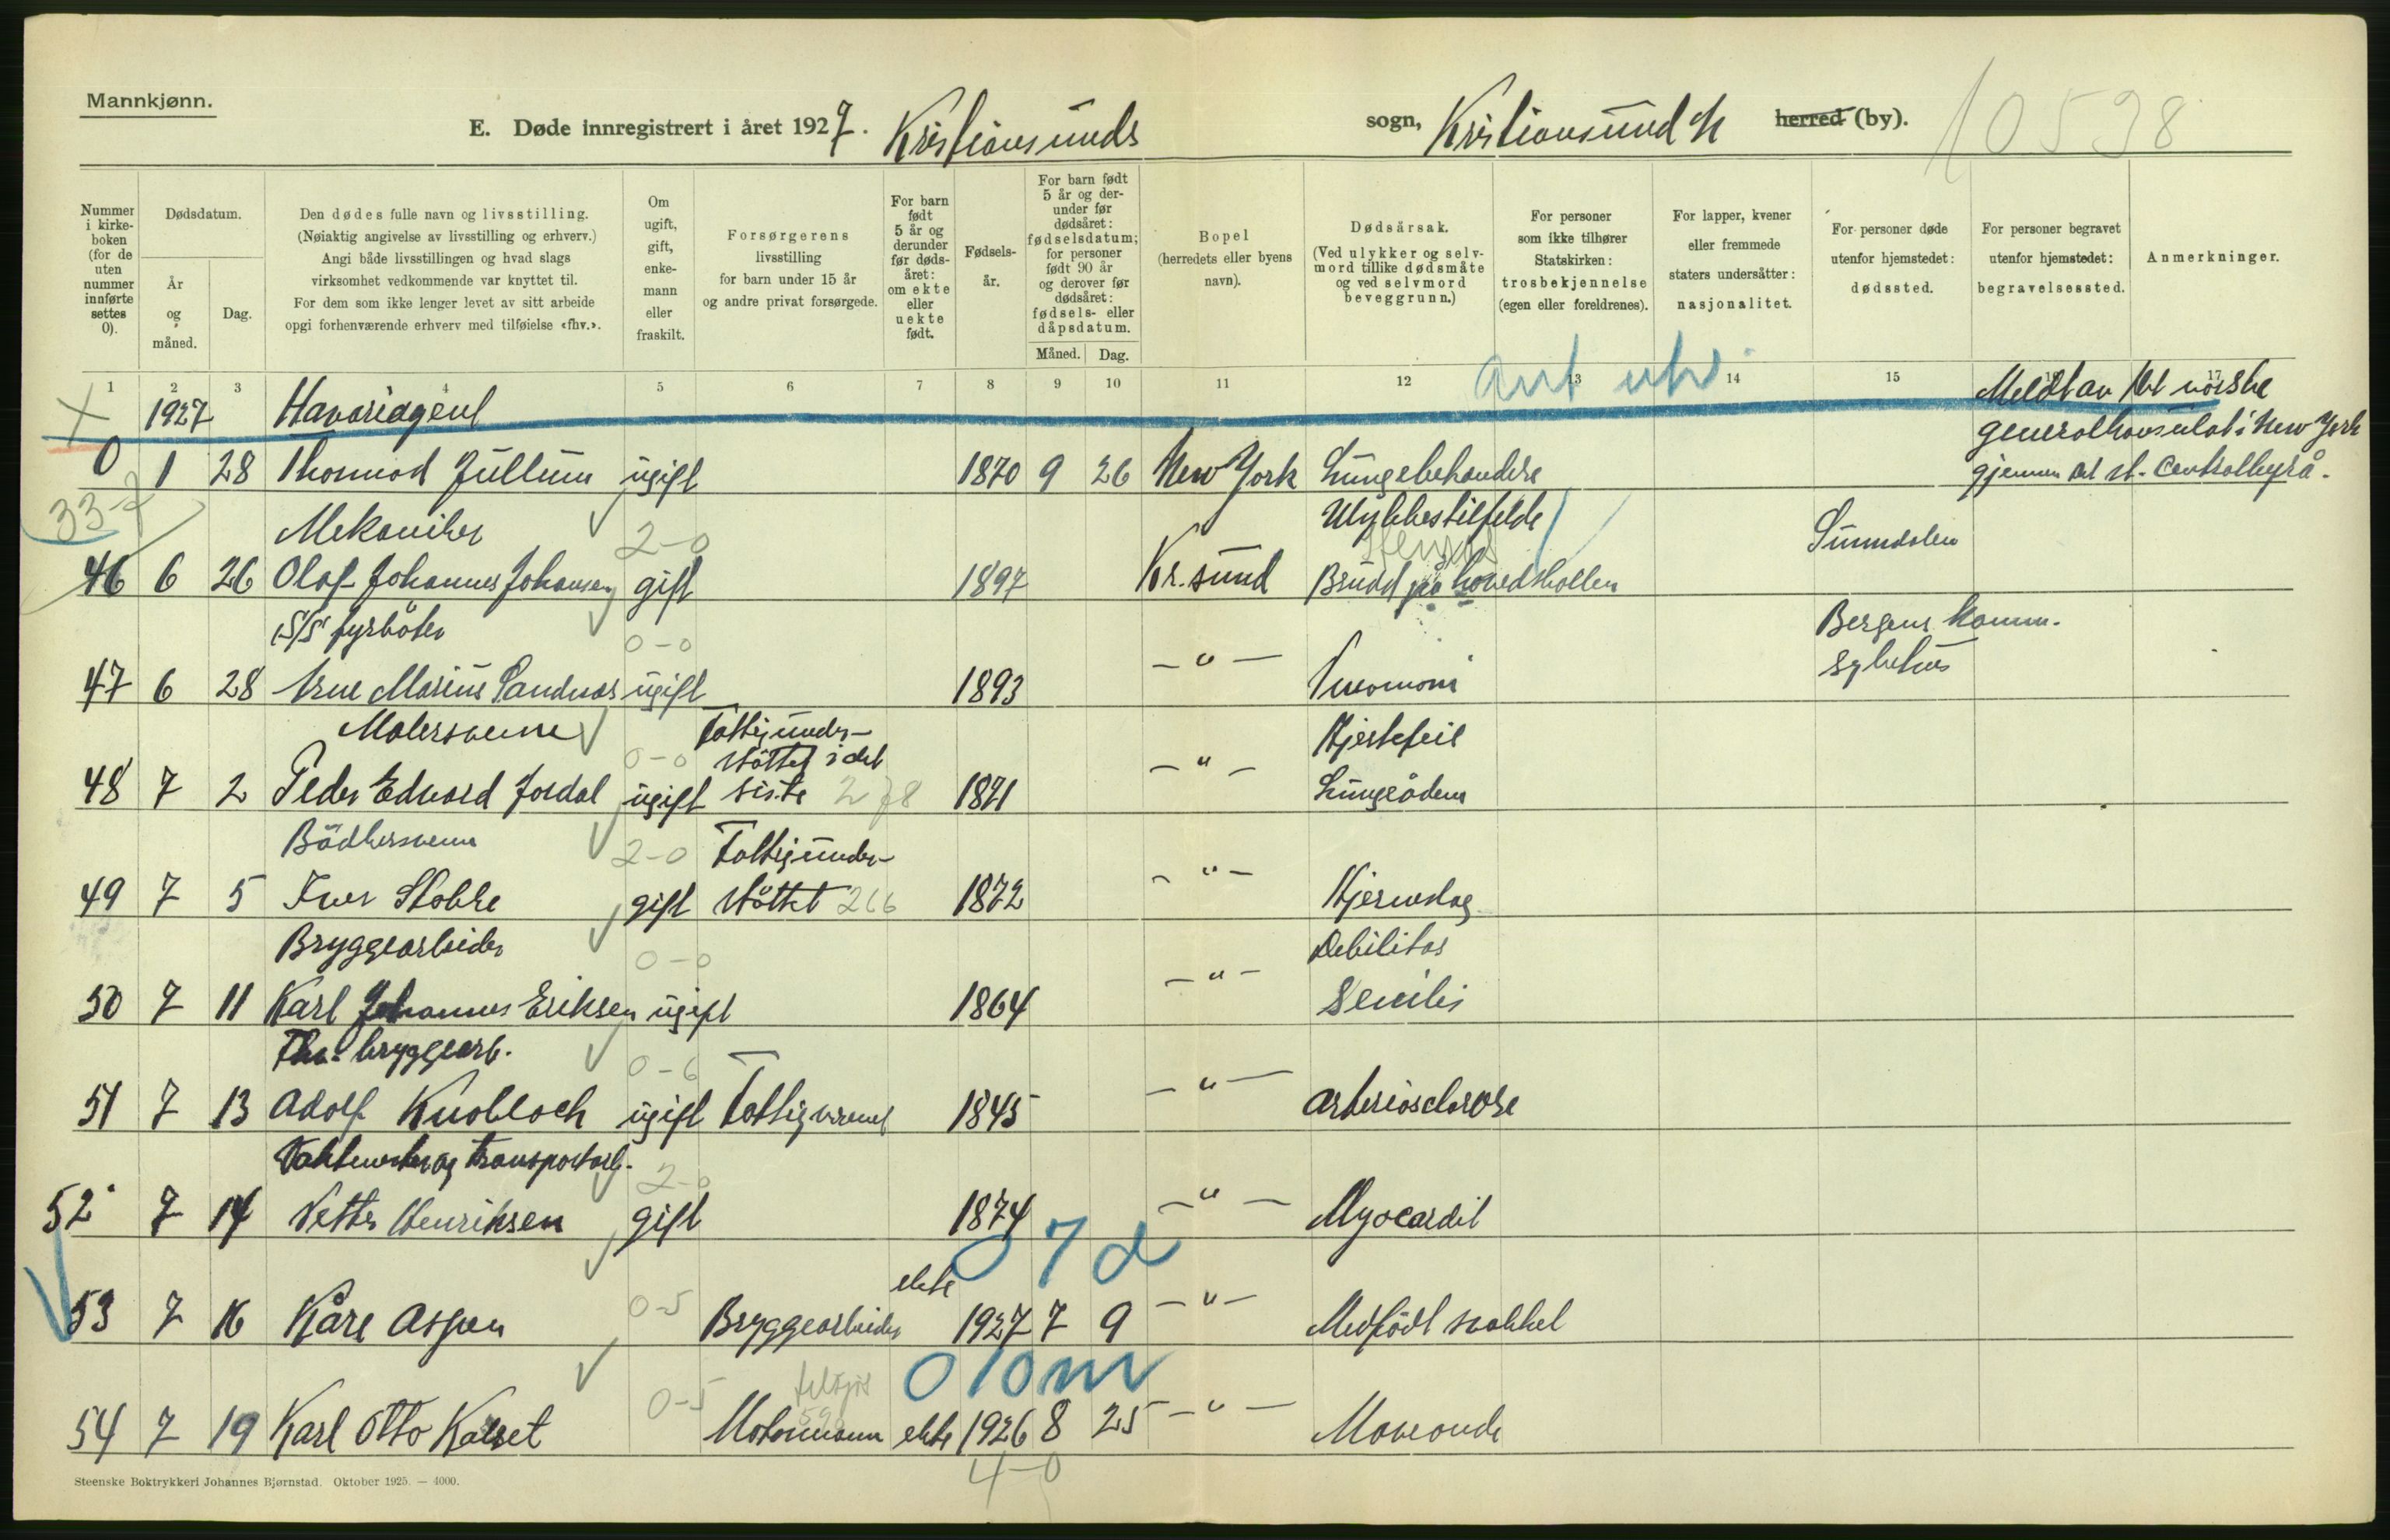 Mannkjønn.
E. Døde innregistrert i året 1927. Kristiansunds sogn, Kristiansund N herred (by). 10598
Nummer i kirkeboken (for de uten nummer innførte settes 0).
Dødsdatum.
År og måned.
Dag.
Den dødes fulle navn og livsstilling.
(Nøiaktig angivelse av livsstilling og erhverv.)
Angi både livsstillingen og hvad slags
virksomhet vedkommende var knyttet til.
For dem som ikke lenger levet av sitt arbeide
opgi forhenværende erhverv med tilføielse «fhv.».
Om ugift, gift, enkemann eller fraskilt.
Forsørgerens livsstilling
for barn under 15 år
og andre privat forsørgede.
For barn født 5 år og derunder før dødsåret: om ekte eller uekte født.
Fødselsår.
For barn født 5 år og derunder før dødsåret: fødselsdatum; for personer født 90 år og derover før dødsåret: fødsels- eller dåpsdatum.
Måned. Dag.
Bopel
(herredets eller byens navn).
Dødsårsak.
(Ved ulykker og selvmord tillike dødsmåte og ved selvmord beveggrunn.)
For personer som ikke tilhører Statskirken: trosbekjennelse (egen eller foreldrenes).
For lapper, kvener eller fremmede staters undersåtter: nasjonalitet.
For personer døde utenfor hjemstedet: dødssted.
For personer begravet utenfor hjemstedet: begravelsessted.
Anmerkninger.
1 2 3 4 5 6 7 8 9 10 11 12 13 14 15 16 17
1927 Havariagent Meldt av det norske
generalkonsulat i New York
0 1 28 Thormod Jullum ugift 1870 9 26 New York Lungebetendelse gjennem det st. Centralbyrå.
33-7
Mekaniker 2-0 Ulykkestilfelde Sunndalen
46 6 26 Olaf Johannes Johansen gift 1897 Kr.sund Brudd på hovedskallen
S/S fyrböter 0-0 Bergens komm.
sykehus
47 6 28 Arne Marius Sandnes ugift 1893 —"— Pneumoni
Malersvenn 0-0 Fattigunder- Hjertefeil
støttet i det
48 7 2 Peder Edvard Jordal ugift siste 278 1871 —"— Lungeödem
Bödkersvenn 2-0 Fattigunder-
49 7 5 Iver Stokke gift støttet 266 1872 —"— Hjerneslag
Bryggearbeider 0-0 Debilitas
50 7 11 Karl Johannes Eriksen ugift 1864 —"— Senilis
Fhv. bryggearb. 0-6
51 7 13 Adolf Knobloch ugift Fattigvesenet 1845 —"— Arteriosclerose
Vaktmester og transportarb. 2-0
52 7 14 Petter Henriksen gift 1874 —"— Myocardit
0 7 d
ekte
53 7 16 Kåre Aspen 0-5 Bryggearbeider 1927 7 9 —"— Medfödt svakhet
0 10 m
54 7 19 Karl Otto Kalset 0-5 Motormann ekte 1926 8 25 —"—
4-0
Steenske Boktrykkeri Johannes Bjørnstad. Oktober 1925. — 4000.